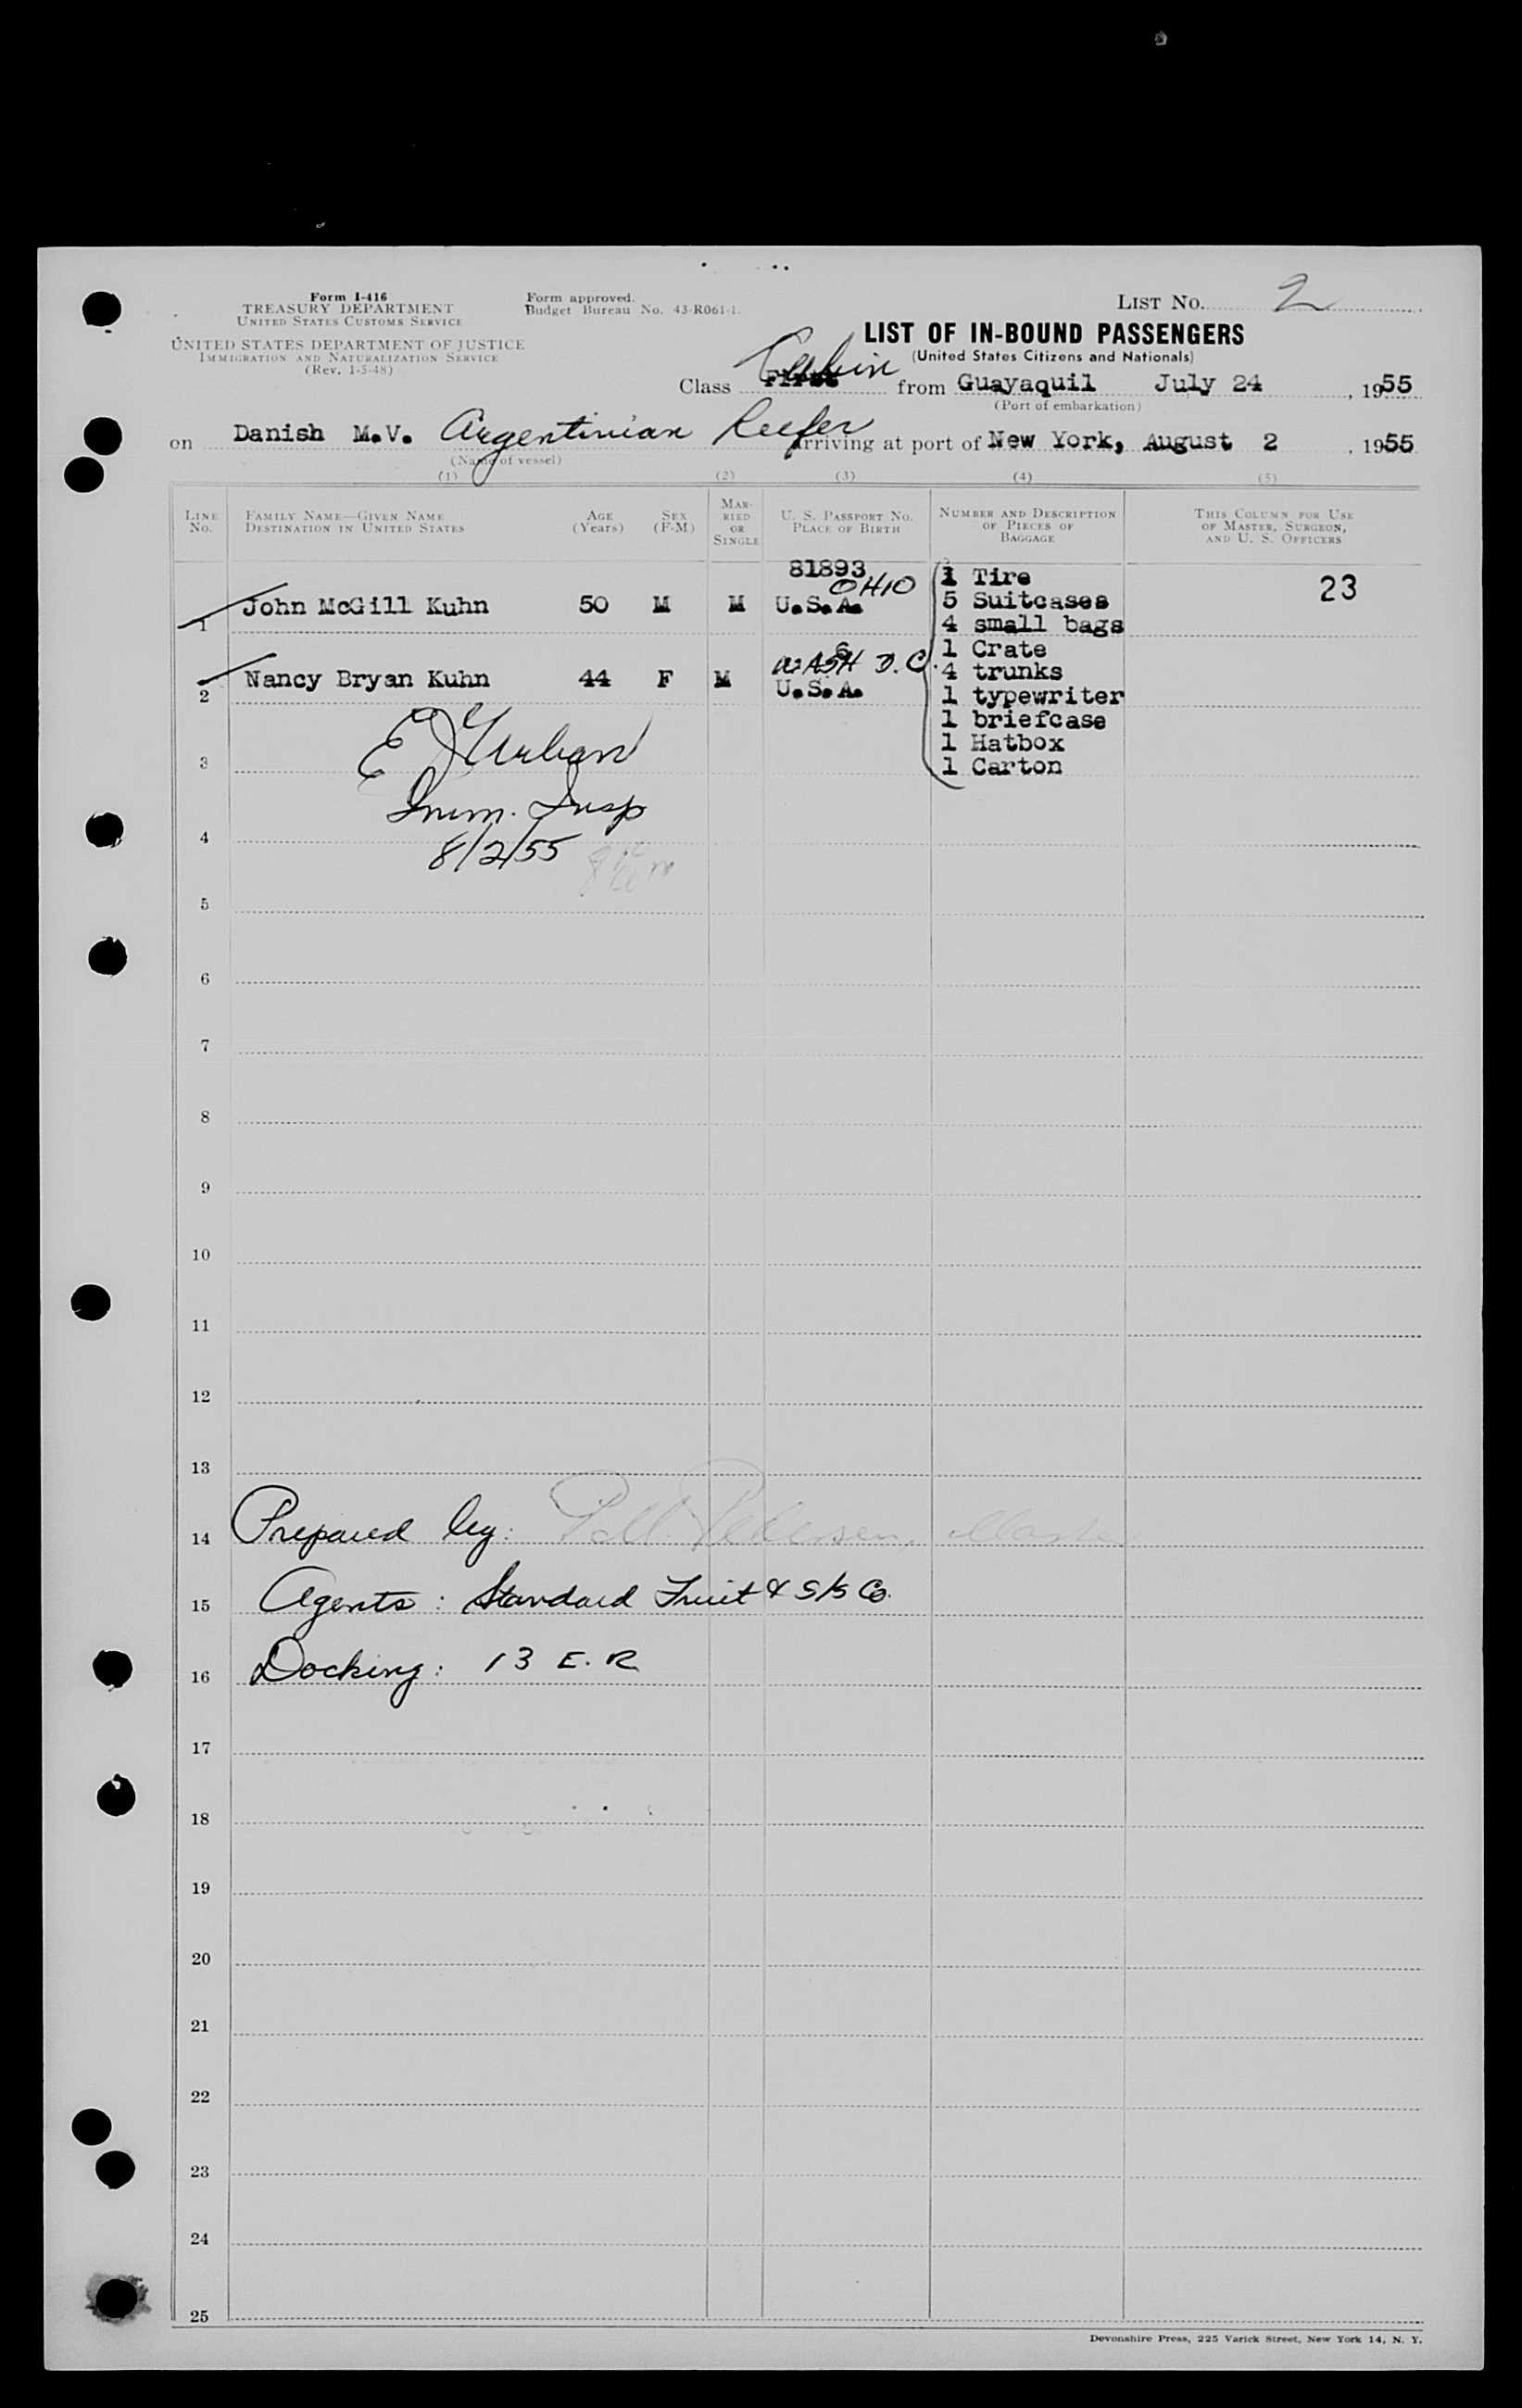 Form I-416
TREASURY DEPARTMENT
UNITED STATES CUSTOMS SERVICE
UNITED STATES DEPARTMENT OF JUSTICE
IMMIGRATION AND NATURALIZATION SERVICE
(Rev. 1-5-48)
Form approved.
Budget Bureau No. 43-R061-1.
LIST NO. 2
LIST OF IN-BOUND PASSENGERS
(United States Citizens and Nationals)
Class First Cabin from Guayaquil July 24, 1955
(Port of embarkation)
on Danish M.V. Argentinian Reefer arriving at port of New York, August 2, 1955
(Name of vessel)
(1) (2) (3) (4) (5)
LINE NO. FAMILY NAME—GIVEN NAME DESTINATION IN UNITED STATES AGE (Years) SEX (F-M) MARRIED OR SINGLE U. S. PASSPORT NO. PLACE OF BIRTH NUMBER AND DESCRIPTION OF PIECES OF BAGGAGE THIS COLUMN FOR USE OF MASTER, SURGEON, AND U. S. OFFICERS
81893
OHIO
1 John McGill Kuhn 50 M M U.S.A. 23
WASH D.C.
2 Nancy Bryan Kuhn 44 F M U.S.A.
1 Tire
5 Suitcases
4 small bags
1 Crate
4 trunks
1 typewriter
1 briefcase
1 Hatbox
1 Carton
3
Imm. Insp
4 8/2/55
5
6
7
8
9
10
11
12
13
14 Prepared by: Pedersen, Master
15 Agents: Standard Fruit & S/S Co.
16 Docking: 13 E. R
17
18
19
20
21
22
23
24
25
Devonshire Press, 225 Varick Street, New York 14, N. Y.